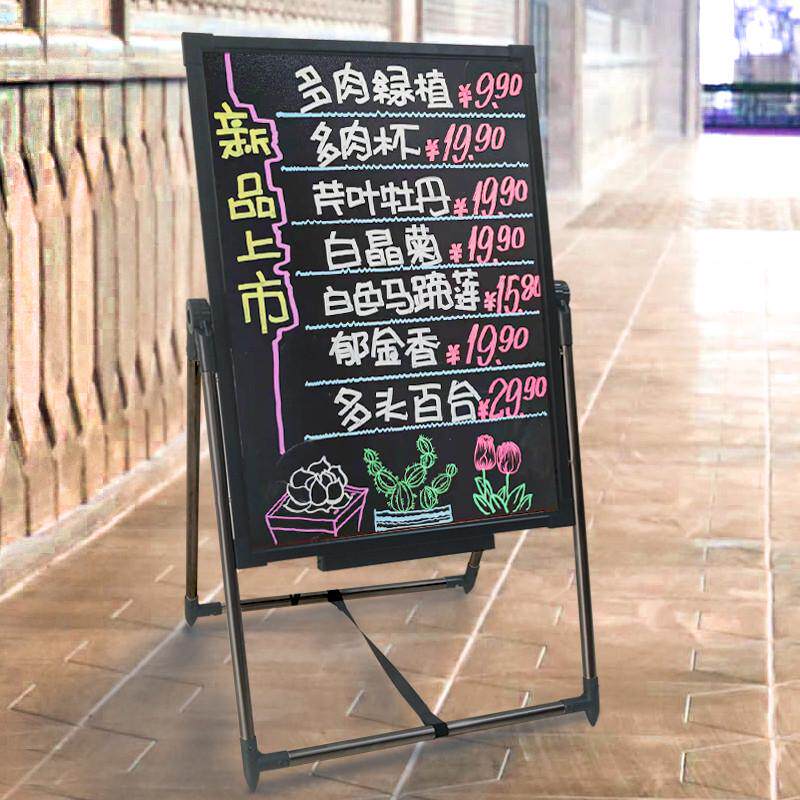 新品上市
多肉緑植 ¥9.90
多肉杯 ¥19.90
芹叶牡丹 ¥19.90
白晶菊 ¥19.90
白色马蹄莲 ¥15.80
郁金香 ¥19.90
多头百合 ¥29.90